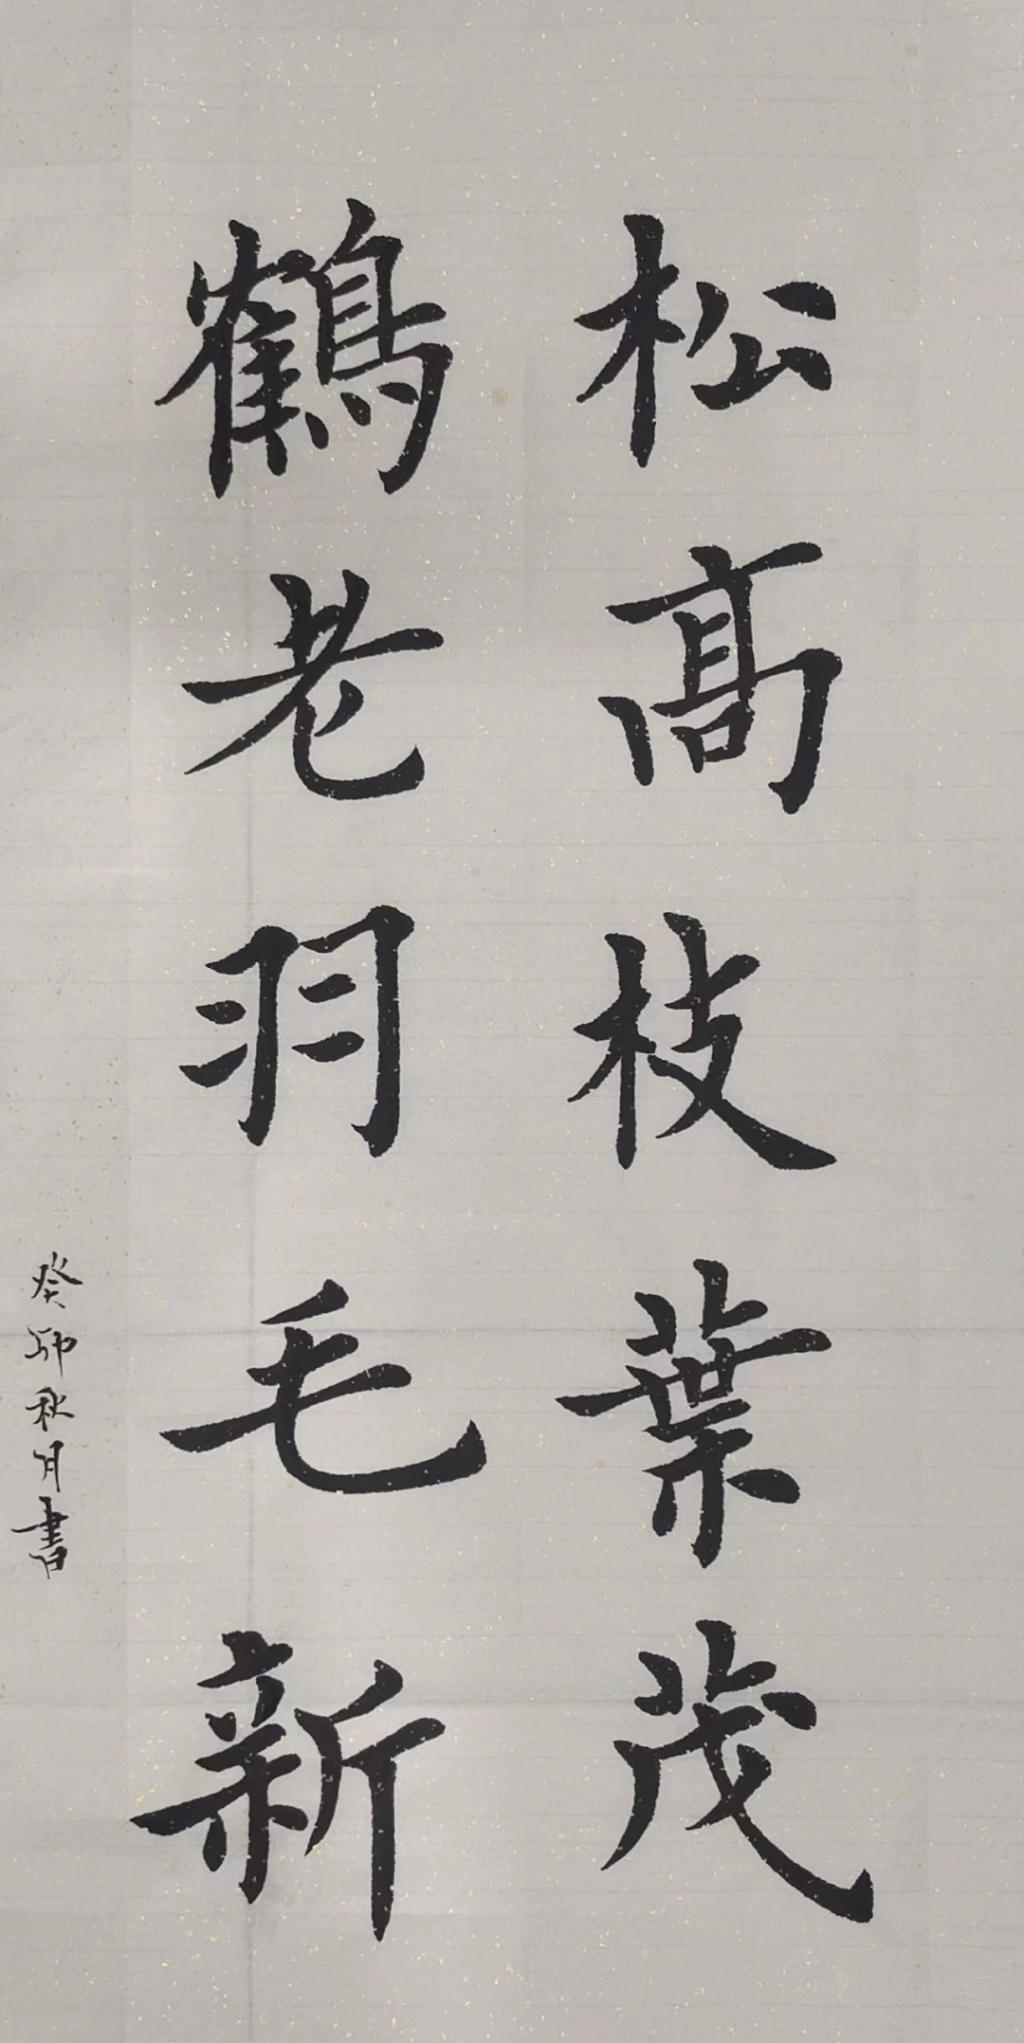 松高枝葉茂
鶴老羽毛新
癸卯秋月書